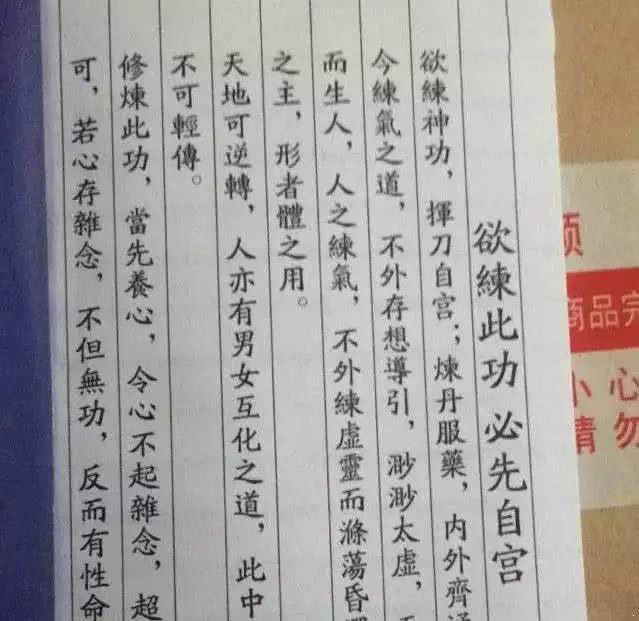 欲練此功 必先自宮
欲練神功，揮刀自宮；煉丹服藥，內外齊
今練氣之道，不外存想導引，渺渺太虛，
而生人，人之練氣，不外練虛靈而滌蕩昏
之主，形者體之用。
天地可逆轉，人亦有男女互化之道，此中
不可輕傳。
修煉此功，當先養心，令心不起雜念，超
可，若心存雜念，不但無功，反而有性命
商品完
小心
请勿